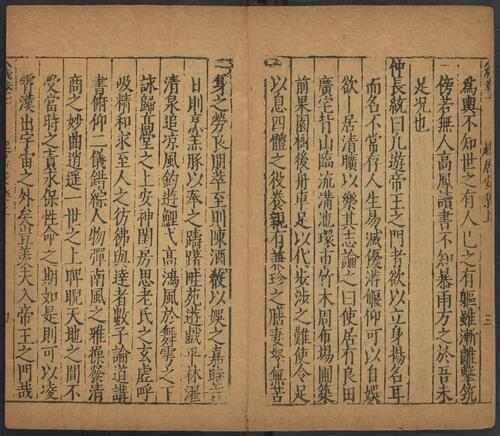 為輿不知世之有人己之有軀雖漸離擊筑
傍若無人高鳳讀書不知暴雨方之於吾未
足况也
仲長統曰凡遊帝王之門者欲以立身揚名耳
而名不常存人生易滅優游偃仰可以自娛
欲卜居清曠以樂其志論之曰使居有良田
廣宅背山臨流溝池環市竹木周布場圃築
前果園樹後舟車足以代步涉之難使令足
以息四體之役養親有兼珍之膳妻孥無苦
身之勞良朋萃至則陳酒殽以娛之嘉時吉
日則烹羔豚以奉之躊躇畦苑遊戲平林濯
清泉追凉風釣遊鯉弋高鴻風於舞雩之下
詠歸高堂之上安神閨房思老氏之玄虛呼
吸精和求至人之彷彿與達者數子論道講
書俯仰二儀錯綜人物彈南風之雅操發清
商之妙曲逍遙一世之上睥睨天地之間不
受當時之責永保性命之期如是則可以凌
霄漢出宇宙之外矣豈羡夫入帝王之門哉